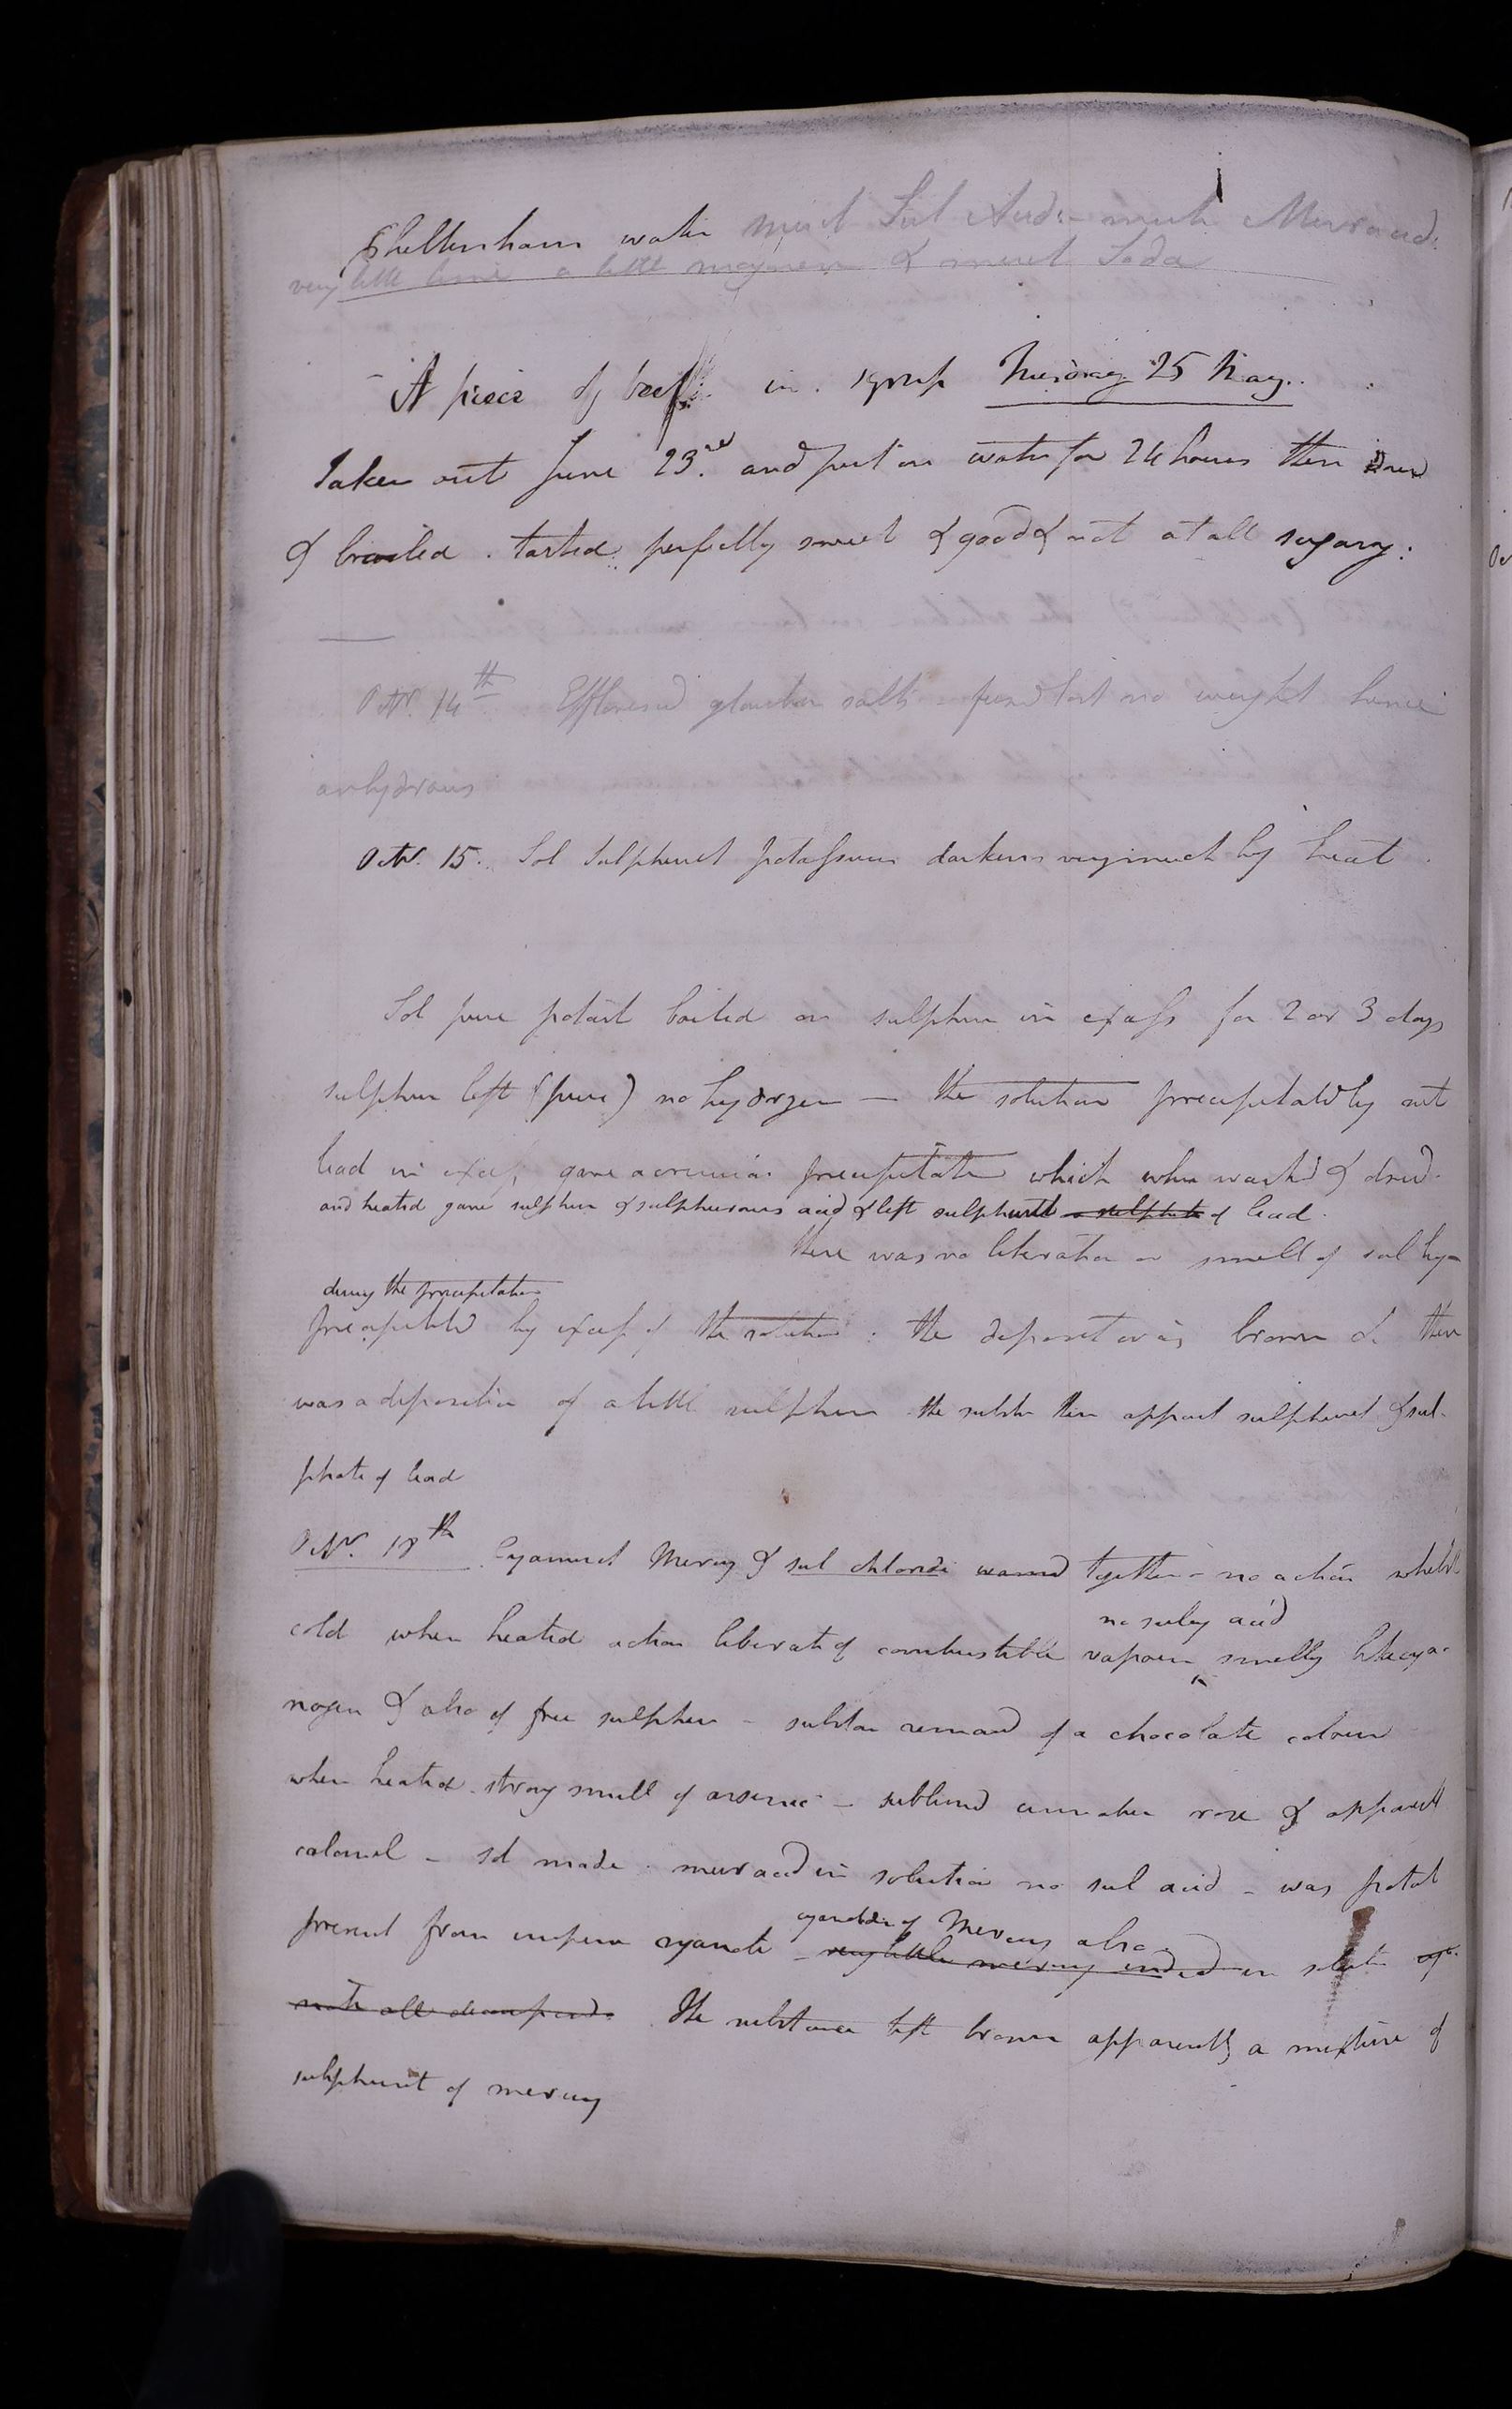 Cheltenham water much Sul Acid - much Mur acid.
very little lime a little magnesia & much Soda
A piece of beef in syrup Tuesday 25 May.
Taken out June 23rd. and put in water for 24 hours then dried
& broiled. tasted perfectly sweet & good & not at all sugary:
Octr. 14th Effloresced glauber salts fused lost no weight hence
anhydrous
Octr. 15. Sol Sulphuret potassium darkens very much by heat
Sol pure potash boiled on sulphur in excess for 2 or 3 days
sulphur left (pure) no hydrogen — the solution precipitated by nit
lead in excess gave a precipitate which when washd & dried
and heated gave sulphur & sulphurous acid & left sulphuret a sulphate of lead.
there was no liberation or smell of sul hy-
during the precipitation
precipitated by excess of the solution: the deposit was brown & there
was a deposition of a little sulphur the substn then appart sulphuret & sul-
phate of lead
Octr. 18th Cyanuret Mercy & sul chloride warmd together - no action whilst
no sulry acid
cold when heated action liberatn of combustible vapour smellg like cya-
nogen & also of free sulphur - substan remand of a chocolate colour
when heated strong smell of arsenic - sublimd cinnabar rose & apparently
calomel - sol made. mur acid in solution no sul acid - was potash
cyanide of Mercury also
present from impure cyanate - very little mercury indeed in solutn
not all decomposed. The substance left brown apparently a mixture of
sulphuret of mercury